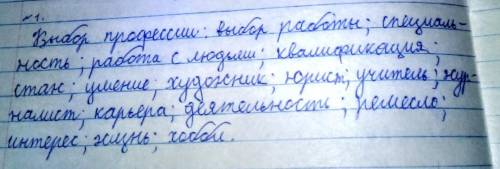 ~1.
Выбор профессии: выбор работы; специаль-
ность; работа с людьми; квалификация;
стаж; умение; художник; юрист; учитель; жур-
налист; карьера; деятельность; ремесло;
интерес; жизнь; хобби.